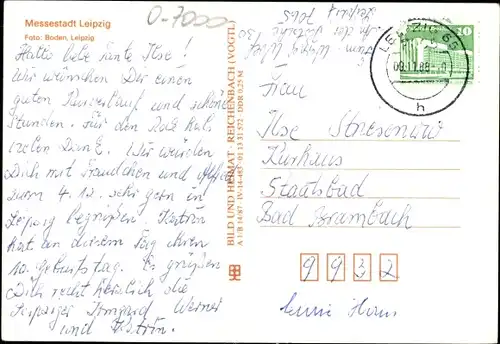 Messestadt Leipzig
Foto: Boden, Leipzig
O-7000
Hallo liebe Tante Ilse!
Wir wünschen Dir einen
guten Kurverlauf und schöne
Stunden. Für den Rat
vielen Dank. Wir würden
Dich mit Frauchen und
zum 4.12. sehr gern in
Leipzig begrüßen. Katrin
hat an diesem Tag ihren
10. Geburtstag. Es grüßen
Dich recht herzlich die
Leipziger Irmgard Werner
und Katrin.
BILD UND HEIMAT · REICHENBACH (VOGTL)
A 1/B 14/87 · IV-14-483 · 01 13 31 572 · DDR 0,25 M
Leipzig
7065
LEIPZIG 65
09.11.88
h
10
Frau
Ilse
Kurhaus
Staatsbad
Bad Brambach
9932